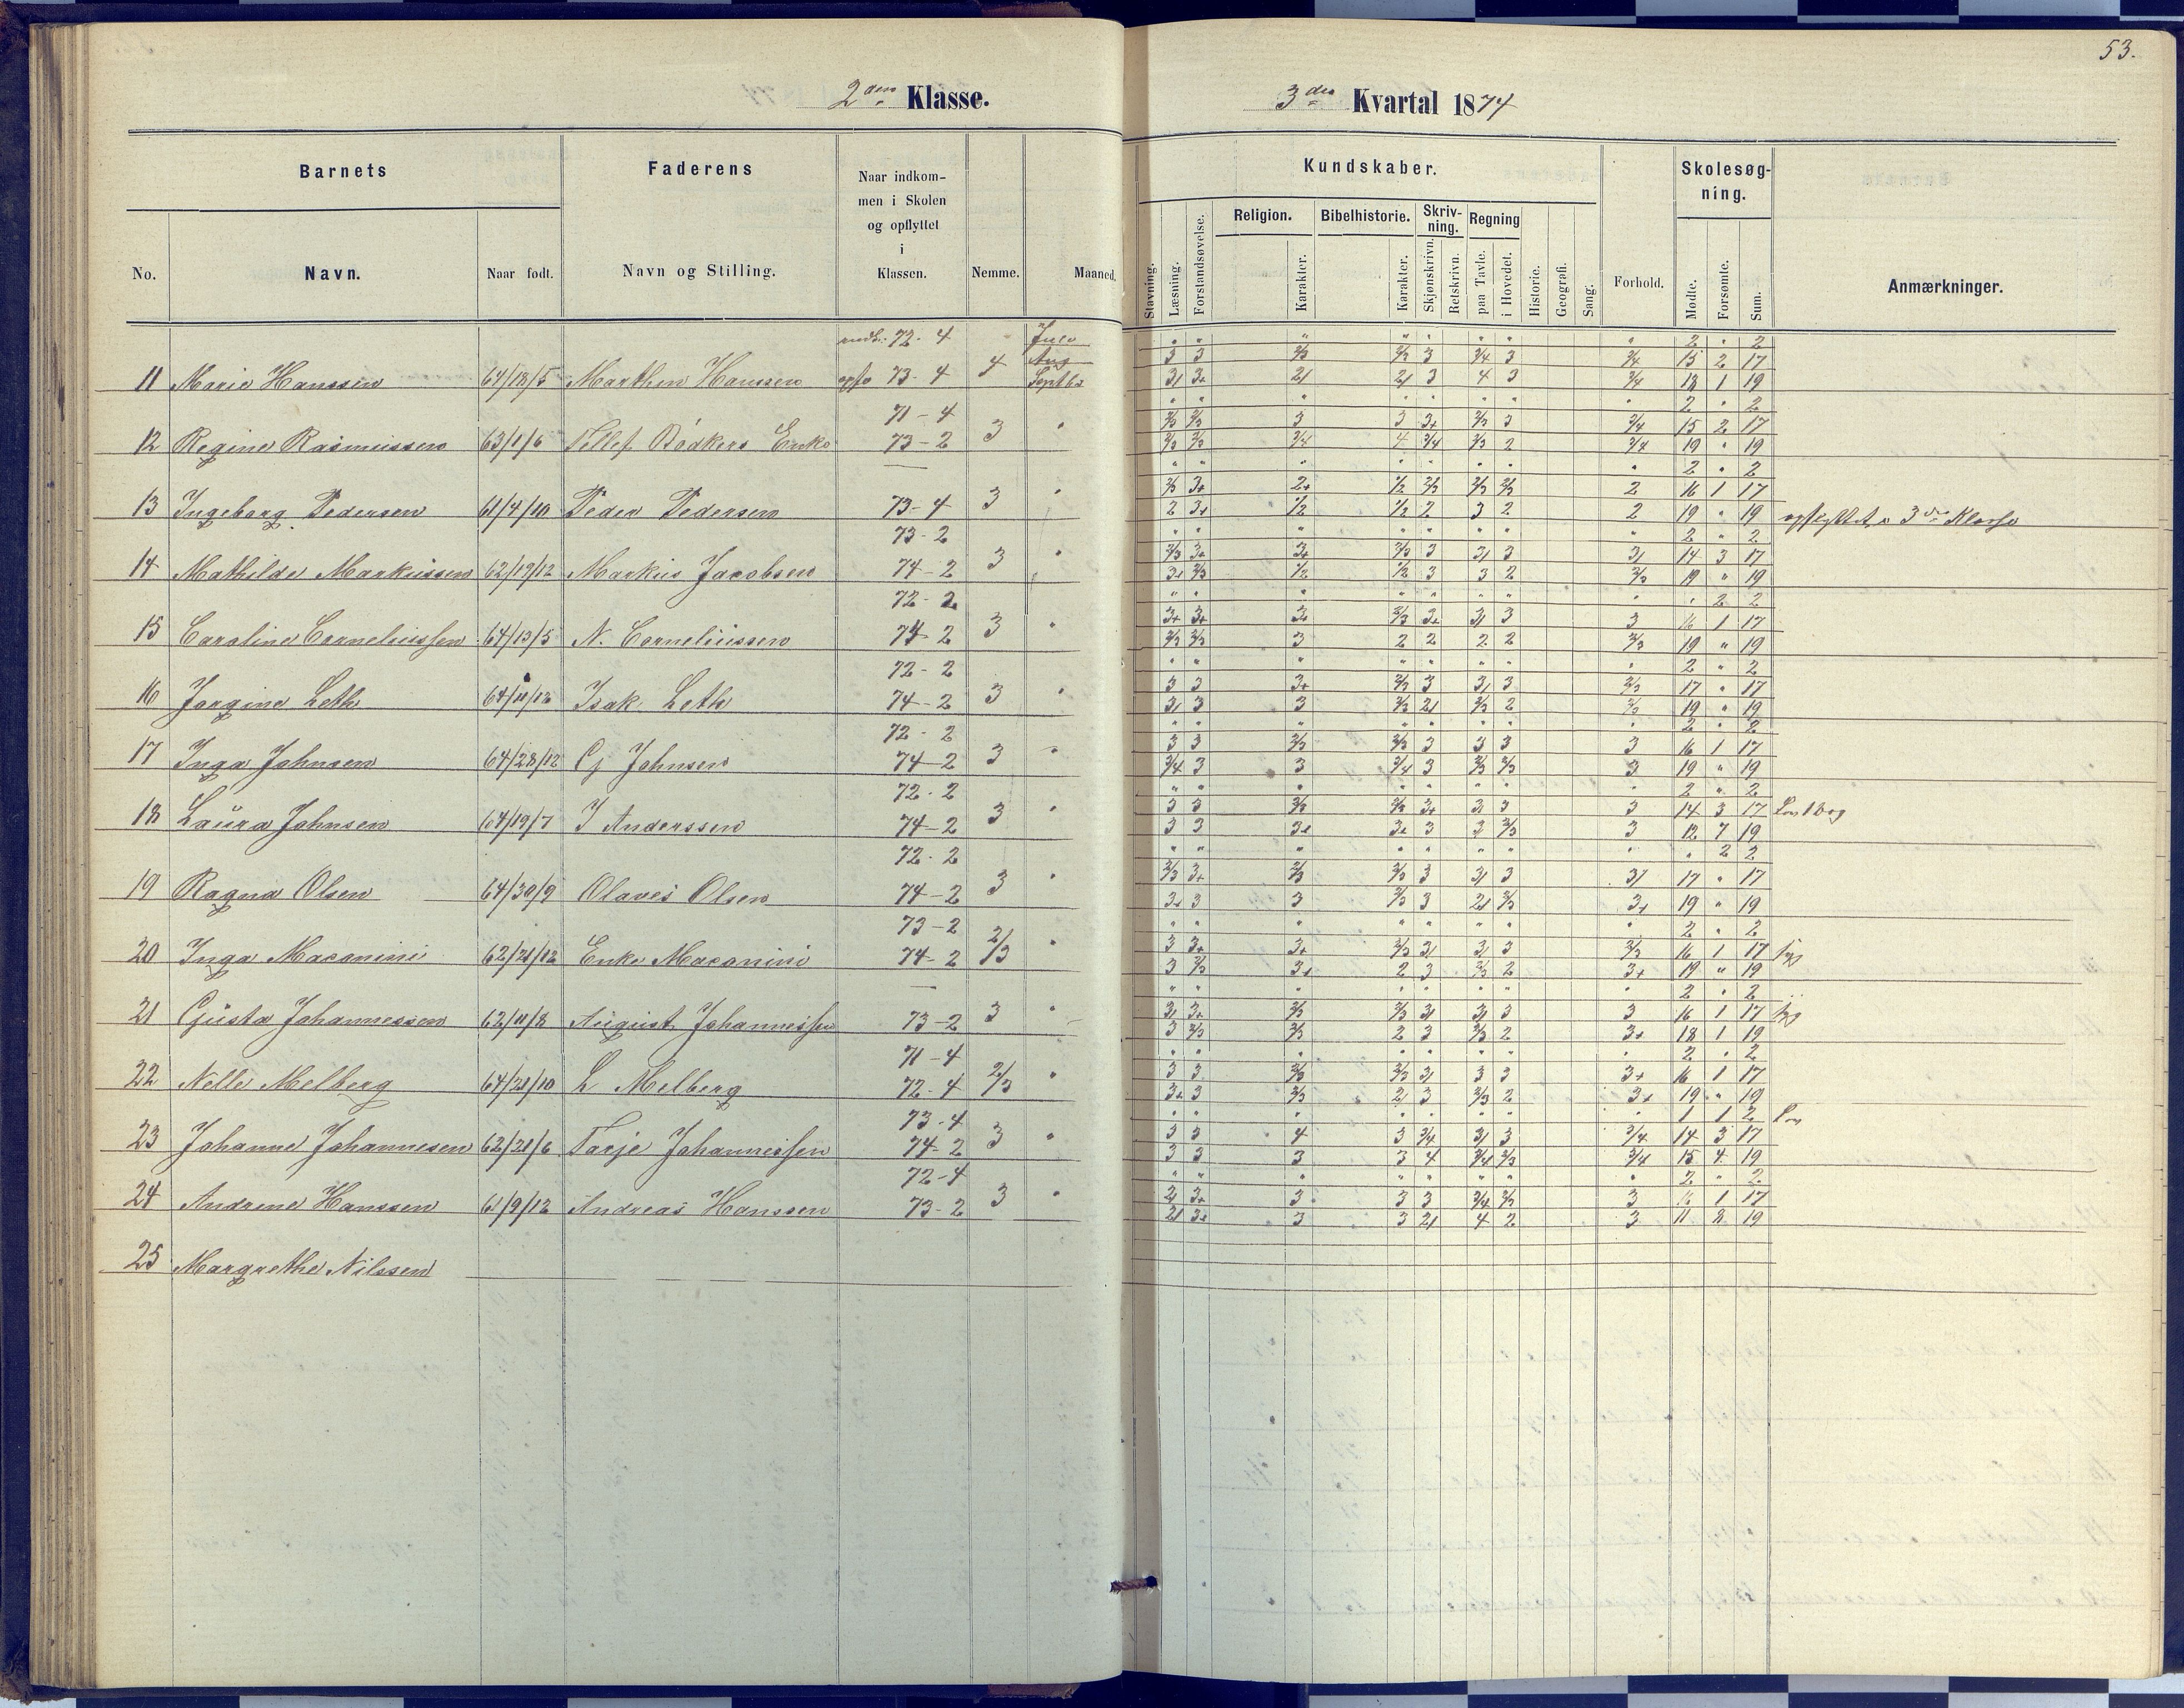 53.
2den Klasse.
3die Kvartal 1874
Barnets
Faderens
Naar indkom-
men i Skolen
og opflyttet
i
Klassen.
No.
Navn.
Naar født.
Navn og Stilling.
Nemme.
Maaned.
Kundskaber.
Skolesøg-
ning.
Religion.
Bibelhistorie.
Skriv-
ning.
Regning
Stavning.
Læsning.
Forstandsøvelse.
Karakter.
Karakter.
Skjønskrivn.
Retskrivn.
paa Tavle.
i Hovedet.
Historie.
Geografi.
Sang.
Forhold.
Mødte.
Forsømte.
Sum.
Anmærkninger.
72-4 Juli " " " " " " " " 2 " 2
Aug 3 3 2/3 2/3 3 3/4 3 3/4 15 2 17
11 Marie Hanssen 64/18/5 Marthin Hanssen 73-4 4 Septbr 3/ 3+ 2/ 2/ 3 4 3 3/4 18 1 19
71-4 2 " 2
2/3 2/3 3 3 3+ 2/3 3 3/4 15 2 17
12 Regine Rasmussen 63/1/6 Tellef Bödkers Enke 73-2 3 " 2/3 2/3 3/4 4 3/4 2/3 2 3/4 19 " 19
2 " 2
2/3 3+ 2+ 1/2 2/3 2/3 2/3 2 16 1 17
13 Ingeborg Pedersen 61/4/10 Peder Pedersen 73-4 3 " 2 3+ 1/2 1/2 2 3 2 2 19 " 19 opflyttet i 3die Klasse
73-2 2 " 2
2/3 3+ 3+ 2/3 3 3/ 3 3/ 14 3 17
14 Mathilde Markussen 62/19/12 Markus Jacobsen 74-2 3 " 3+ 2/3 1/2 1/2 3 3 2 2/3 19 " 19
72-2 " 2 2
3+ 3+ 3+ 2/3 3+ 3/ 3 3 16 1 17
15 Caroline Corneliussen 64/13/5 N. Corneliussen 74-2 3 " 2/3 2/3 3 2 2 2 2 2/3 19 " 19
72-2 2 " 2
3 3 3+ 2/3 3 3/ 3 2/3 17 " 17
16 Jorgine Leth 64/11/12 Isak Leth 74-2 3 " 3/ 3 3 2/3 2/ 2/3 2 2/3 19 " 19
72-2 2 " 2
3 3 2/3 2/3 3 3 3 3 16 1 17
17 Inga Johnsen 64/28/12 Johnsen 74-2 3 " 3/4 3 3 3/4 3 2/3 2/3 3 19 " 19
72-2 2 " 2
3 3 2/3 2/3 3+ 3/ 3 3 14 3 17
18 Laura Johnsen 64/19/7 J Anderssen 74-2 3 " 3 3 3+ 3+ 3 3 2/3 3 12 7 19
72-2 " 2 2
2/3 3+ 2/3 2/3 3 3/ 3 3/ 17 " 17
19 Ragna Olsen 64/30/9 Olaves Olsen 74-2 3 " 3+ 3 3 2/3 3 2/ 2/3 3+ 19 " 19
73-2 2 " 2
3 3+ 3+ 2/3 3/ 3/ 3 2/3 16 1 17 syg
20 Inga Macanini 62/21/12 Enke Macanini 74-2 2/3 " 3 2/3 3+ 2 3 2/3 2 3+ 19 " 19
2 " 2
3/ 3+ 2/3 2/3 3/ 3/ 3 3 16 1 17 syg
21 Gusta Johannessen 62/11/8 August Johannessen 73-2 3 " 3 2/3 2/3 2 3 2/3 2 3+ 18 1 19
71-4 2 " 2
3 3 2/3 2/3 3/ 3 3 3+ 16 1 17
22 Nelle Melberg 64/21/10 L Melberg 72-4 2/3 " 3+ 3 2/3 2/ 3 2/3 2 3+ 19 " 19
73-4 1 1 2
3 3 4 3 3/4 3/ 3 3/4 14 3 17
23 Johanne Johannesen 62/21/6 Tarje Johannessen 74-2 3 " 3 3 3 3 4 3/4 2/3 3/4 15 4 19
72-4 2 " 2
2/ 3+ 3 3 3 3/4 2/3 3 16 1 17
24 Andrene Hanssen 61/9/12 Andreas Hanssen 73-2 3 " 2/ 3+ 3 3 2/ 4 2 3 11 8 19
25 Margrethe Nilssen